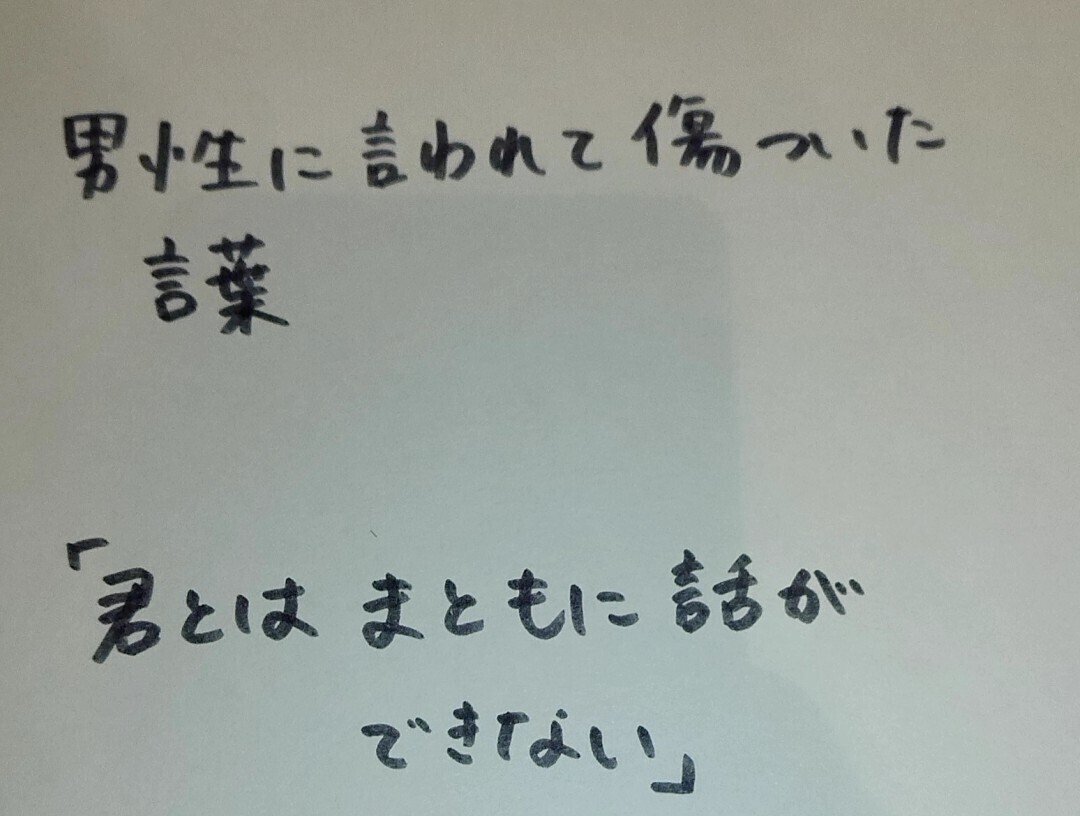 男性に言われて傷ついた
言葉
「君とは まともに話が
できない」